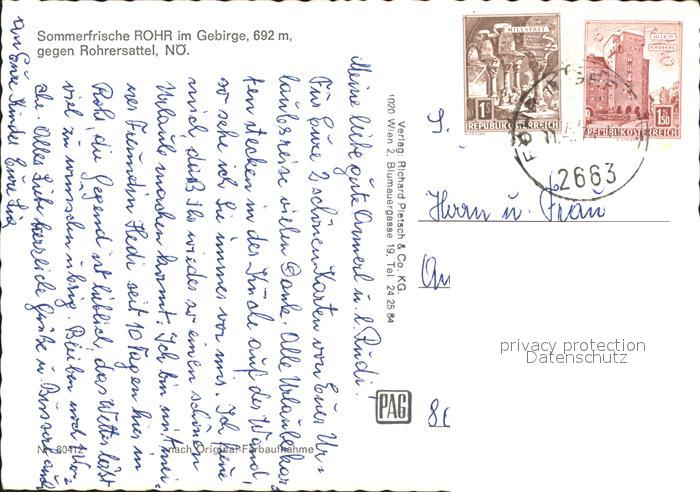 Sommerfrische ROHR im Gebirge, 692 m,
gegen Rohrersattel, NÖ.
Meine liebe gute Annerl u. l. Rudi!
Für Eure 2 schönen Karten von Eurer Ur-
laubsreise vielen Dank. Alle Urlaubskar
ten stecken in der Küche auf der Wand,
so sehe ich Sie immer vor mir. Ich freue
mich, daß Ihr wieder so einen schönen
Urlaub machen konnt. Ich bin mit mei
ner Freundin Hedi seit 10 Tagen hier in
Rohr, die Gegend ist lieblich, das Wetter lässt
viel zu wünschen übrig. Bleiben noch 1 Wo-
che. Alles Liebe herzliche Grüße u. Busserl auch
an Eure Kinder Eure
Nr. 80412
nach Original-Farbaufnahme
Verlag: Richard Pietsch & Co. KG.
1020 Wien 2, Blumauergasse 19, Tel. 24 25 84
PAG
MILLSTATT
1 S
REPUBLIK ÖSTERREICH
WIEN
ERDBERG
S 1.50
REPUBLIK ÖSTERREICH
2663
Herrn u. Frau
privacy protection
Datenschutz